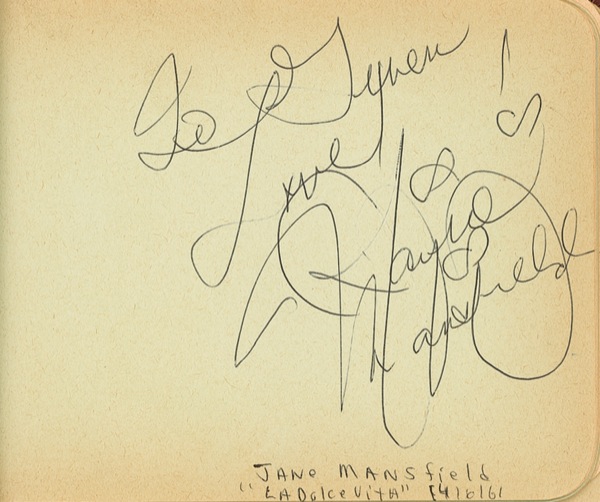 To Gynen!
Love
Jayne
Mansfield
JANe MANSfield
"LADolce VitA" [4/6/61